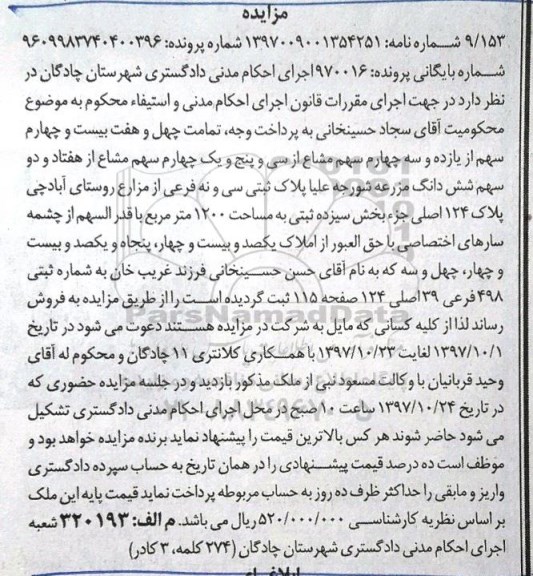 مزایده
۹/۱۵۳ شـماره نامه: ۱۳۹۷۰۰۹۰۰۱۳۵۴۲۵۱ شماره پرونده: ۹۶۰۹۹۸۳۷۴۰۴۰۰۳۹۶
شـماره بایگانی پرونده: ۹۷۰۰۱۶ اجرای احکام مدنی دادگستری شهرستان چادگان در
نظر دارد در جهت اجرای مقررات قانون اجرای احکام مدنی و استیفاء محکوم به موضوع
محکومیت آقای سجاد حسینخانی به پرداخت وجه، تمامت چهل و هفت بیست و چهارم
سهم از یازده و سه چهارم سهم مشاع از سی و پنج و یک چهارم سهم مشاع از هفتاد و دو
سهم شش دانگ مزرعه شورجه علیا پلاک ثبتی سی و نه فرعی از مزارع روستای آبادچی
پلاک ۱۲۴ اصلی جزء بخش سیزده ثبتی به مساحت ۱۲۰۰ متر مربع با قدر السهم از چشمه
سارهای اختصاصی با حق العبور از املاک یکصد و بیست و چهار، پنجاه و یکصد و بیست
و چهار، چهل و سه که به نام آقای حسن حسـینخانی فرزند غریب خان به شماره ثبتی
۴۹۸ فرعی ۳۹ اصلی ۱۲۴ صفحه ۱۱۵ ثبت گردیده اسـت را از طریق مزایده به فروش
رساند لذا از کلیه کسانی که مایل به شرکت در مزایده هستند دعوت می شود در تاریخ
۱۳۹۷/۱۰/۱ لغایت ۱۳۹۷/۱۰/۲۳ با همـکاری کلانتری ۱۱ چادگان و محکوم له آقای
وحید قربانیان با وکالت مسعود نبی از ملک مذکور بازدید و در جلسه مزایده حضوری که
در تاریخ ۱۳۹۷/۱۰/۲۴ ساعت ۱۰ صبح در محل اجرای احکام مدنی دادگستری تشکیل
می شود حاضر شوند هر کس بالاترین قیمت را پیشنهاد نماید برنده مزایده خواهد بود و
موظف است ده درصد قیمت پیشـنهادی را در همان تاریخ به حساب سپرده دادگستری
واریز و مابقی را حداکثر ظرف ده روز به حساب مربوطه پرداخت نماید قیمت پایه این ملک
بر اساس نظریه کارشناسی ۵۲۰/۰۰۰/۰۰۰ ریال می باشد. م الف: ۳۲۰۱۹۳ شعبه
اجرای احکام مدنی دادگستری شهرستان چادگان (۲۷۴ کلمه، ۳ کادر)
ParsNamadData